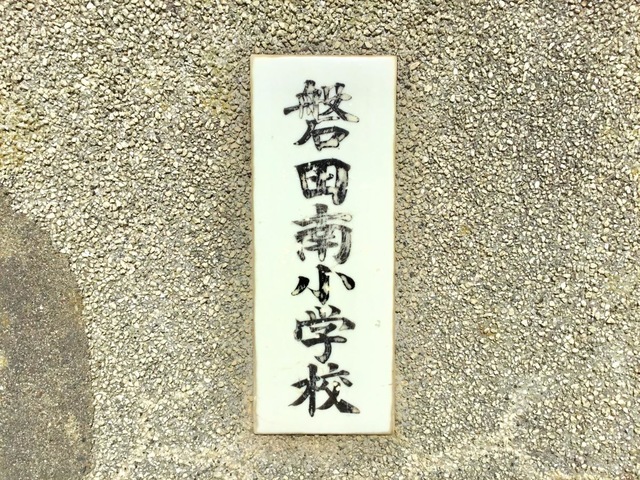 磐田南小学校